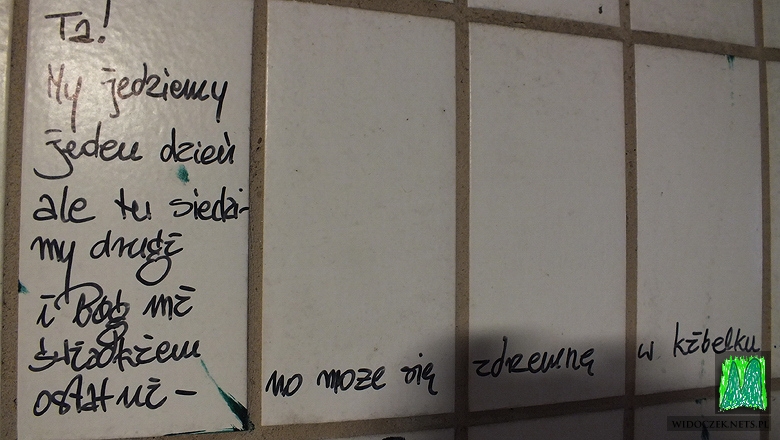 Ta!
My jedziemy
jeden dzień
ale tu siedzi-
my drugi
i Bóg mi
świadkiem
ostatni -
no może się zdrzemnę w kibelku
WIDOCZEK.NETS.PL